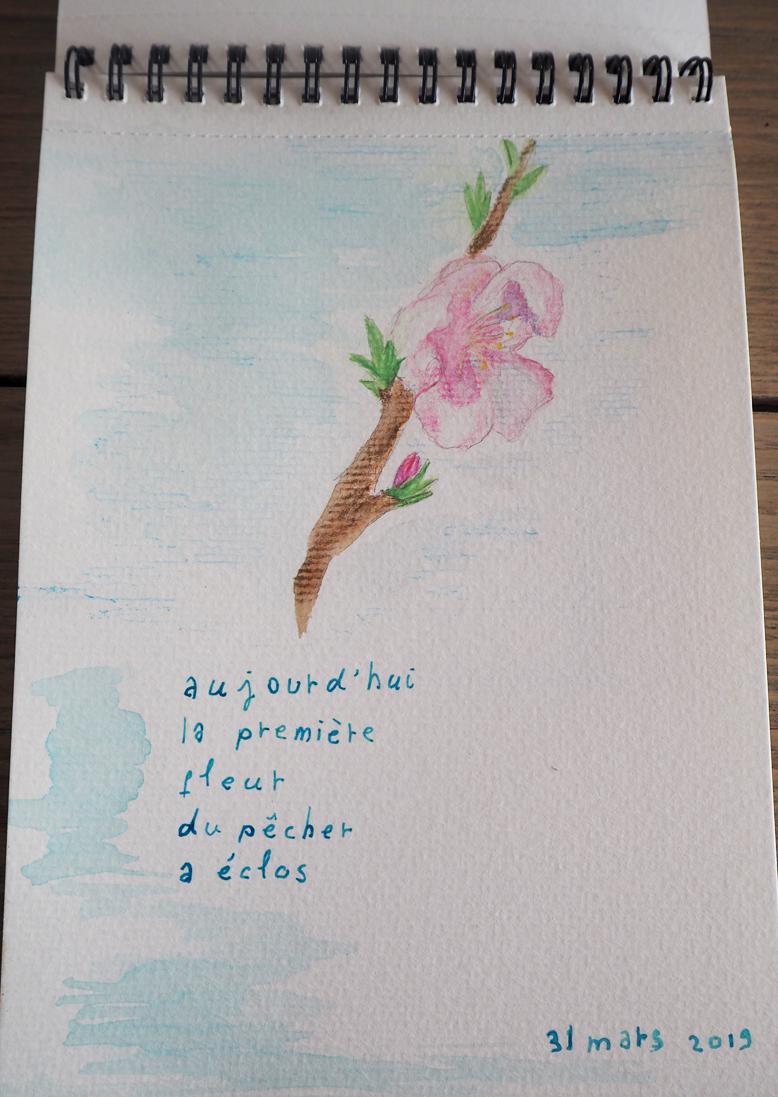 aujourd'hui
la première
fleur
du pêcher
a éclos
31 mars 2019